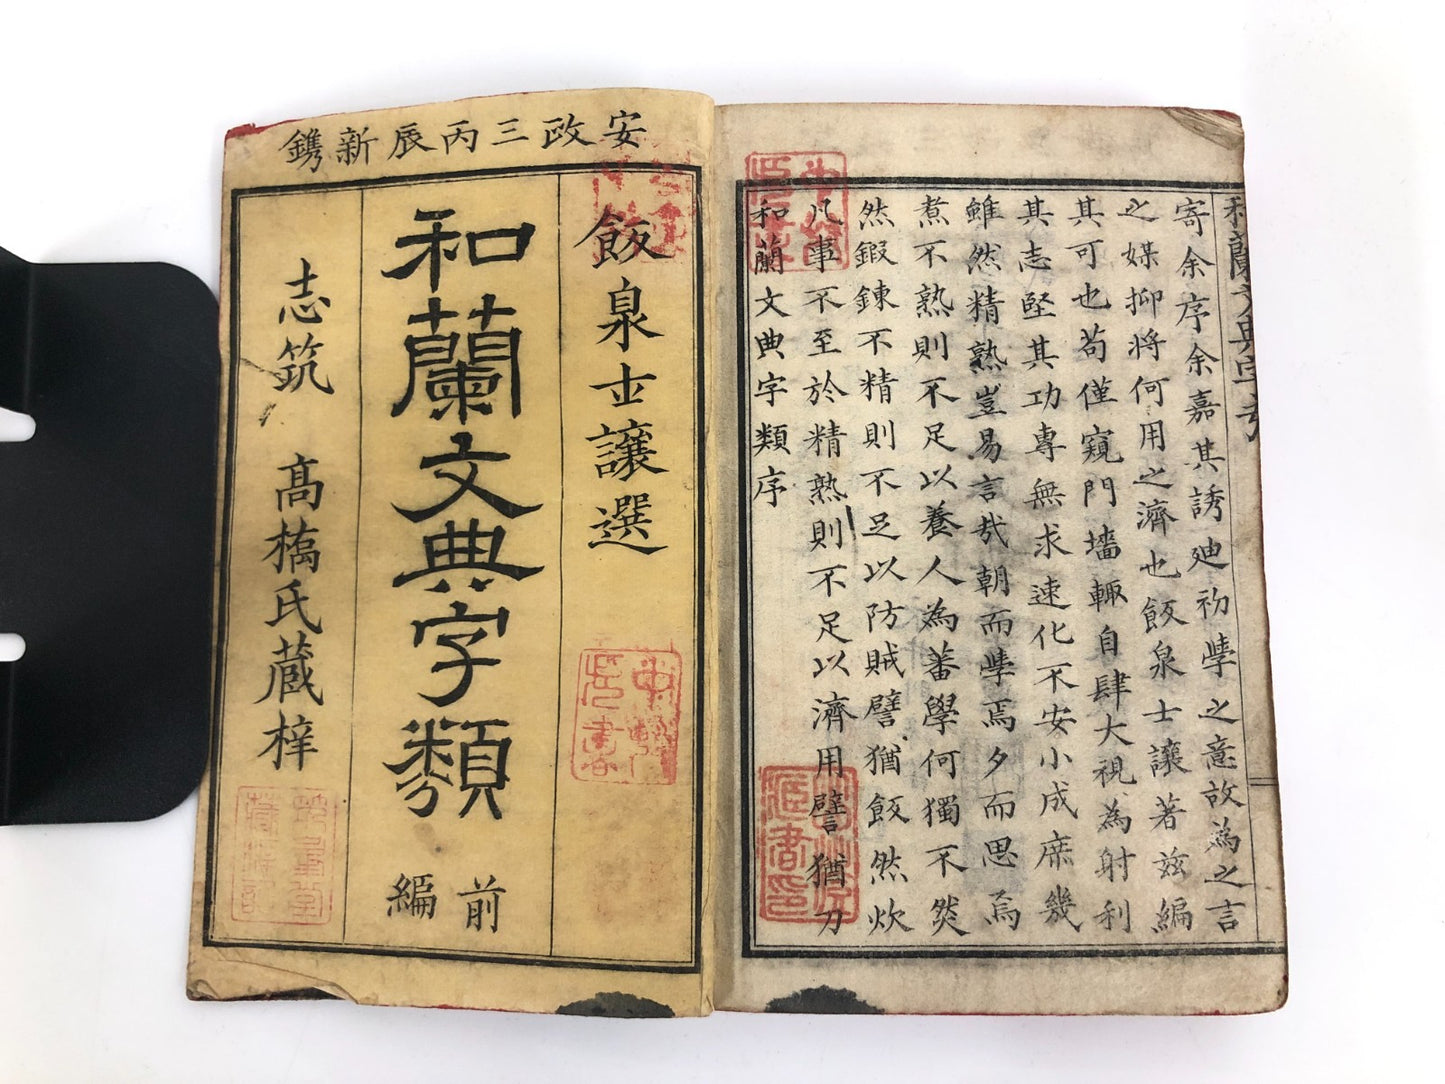 安政三丙辰新鐫
飯泉士讓選
和蘭文典字類
前編
志筑 高橋氏蔵梓
和蘭文典字類序
凡事不至於精熟則不足以濟用譬猶刀
然鍜鍊不精則不足以防賊譬猶飯然炊
煮不熟則不足以養人為蕃學何獨不然
雖然精熟豈易言哉朝而學焉夕而思焉
其志堅其功專無求速化不安小成庶幾
其可也苟僅窺門墻輒自肆大視為射利
之媒抑將何用之濟也飯泉士讓著玆編
寄余序余嘉其誘廸初學之意故為之言